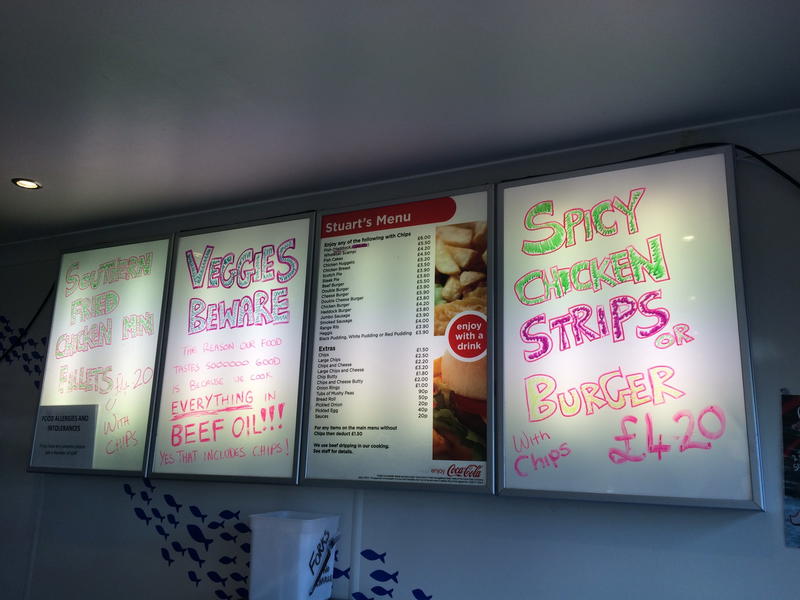 SOUTHERN
FRIED
CHICKEN INNER
FILLETS £4.20
WITH
CHIPS
FOOD ALLERGIES AND
INTOLERANCES
VEGGIES
BEWARE
THE REASON OUR FOOD
TASTES SOOOOOO GOOD
IS BECAUSE WE COOK
EVERYTHING IN
BEEF OIL!!!
YES THAT INCLUDES CHIPS!
Stuart's Menu
Enjoy any of the following with Chips
Fish (Haddock £6.00
Wholetail Scampi £5.50
Fish Cakes £4.20
Chicken Nuggets £4.50
Chicken Breast £5.20
Scotch Pie £3.90
Steak Pie £3.60
Beef Burger £3.50
Double Burger
Cheese Burger
Double Cheese Burger
Chicken Burger
Haddock Burger
Jumbo Sausage
Smoked Sausage £3.90
Range Rib £4.00
Haggis £3.90
Black Pudding, White Pudding or Red Pudding £3.90
Extras
Chips £1.50
Large Chips £2.50
Chips and Cheese £2.20
Large Chips and Cheese £3.20
Chip Butty £1.80
Chips and Cheese Butty £2.00
Onion Rings £1.00
Tubs of Mushy Peas 90p
Bread Roll 50p
Pickled Onion 20p
Pickled Egg 40p
Sauces 20p
For any items on the main menu without
Chips then deduct £1.50
We use beef dripping in our cooking.
See staff for details.
enjoy
with a
drink
enjoy Coca-Cola
SPICY
CHICKEN
STRIPS
OR
BURGER
WITH
CHIPS £4.20
FORKS